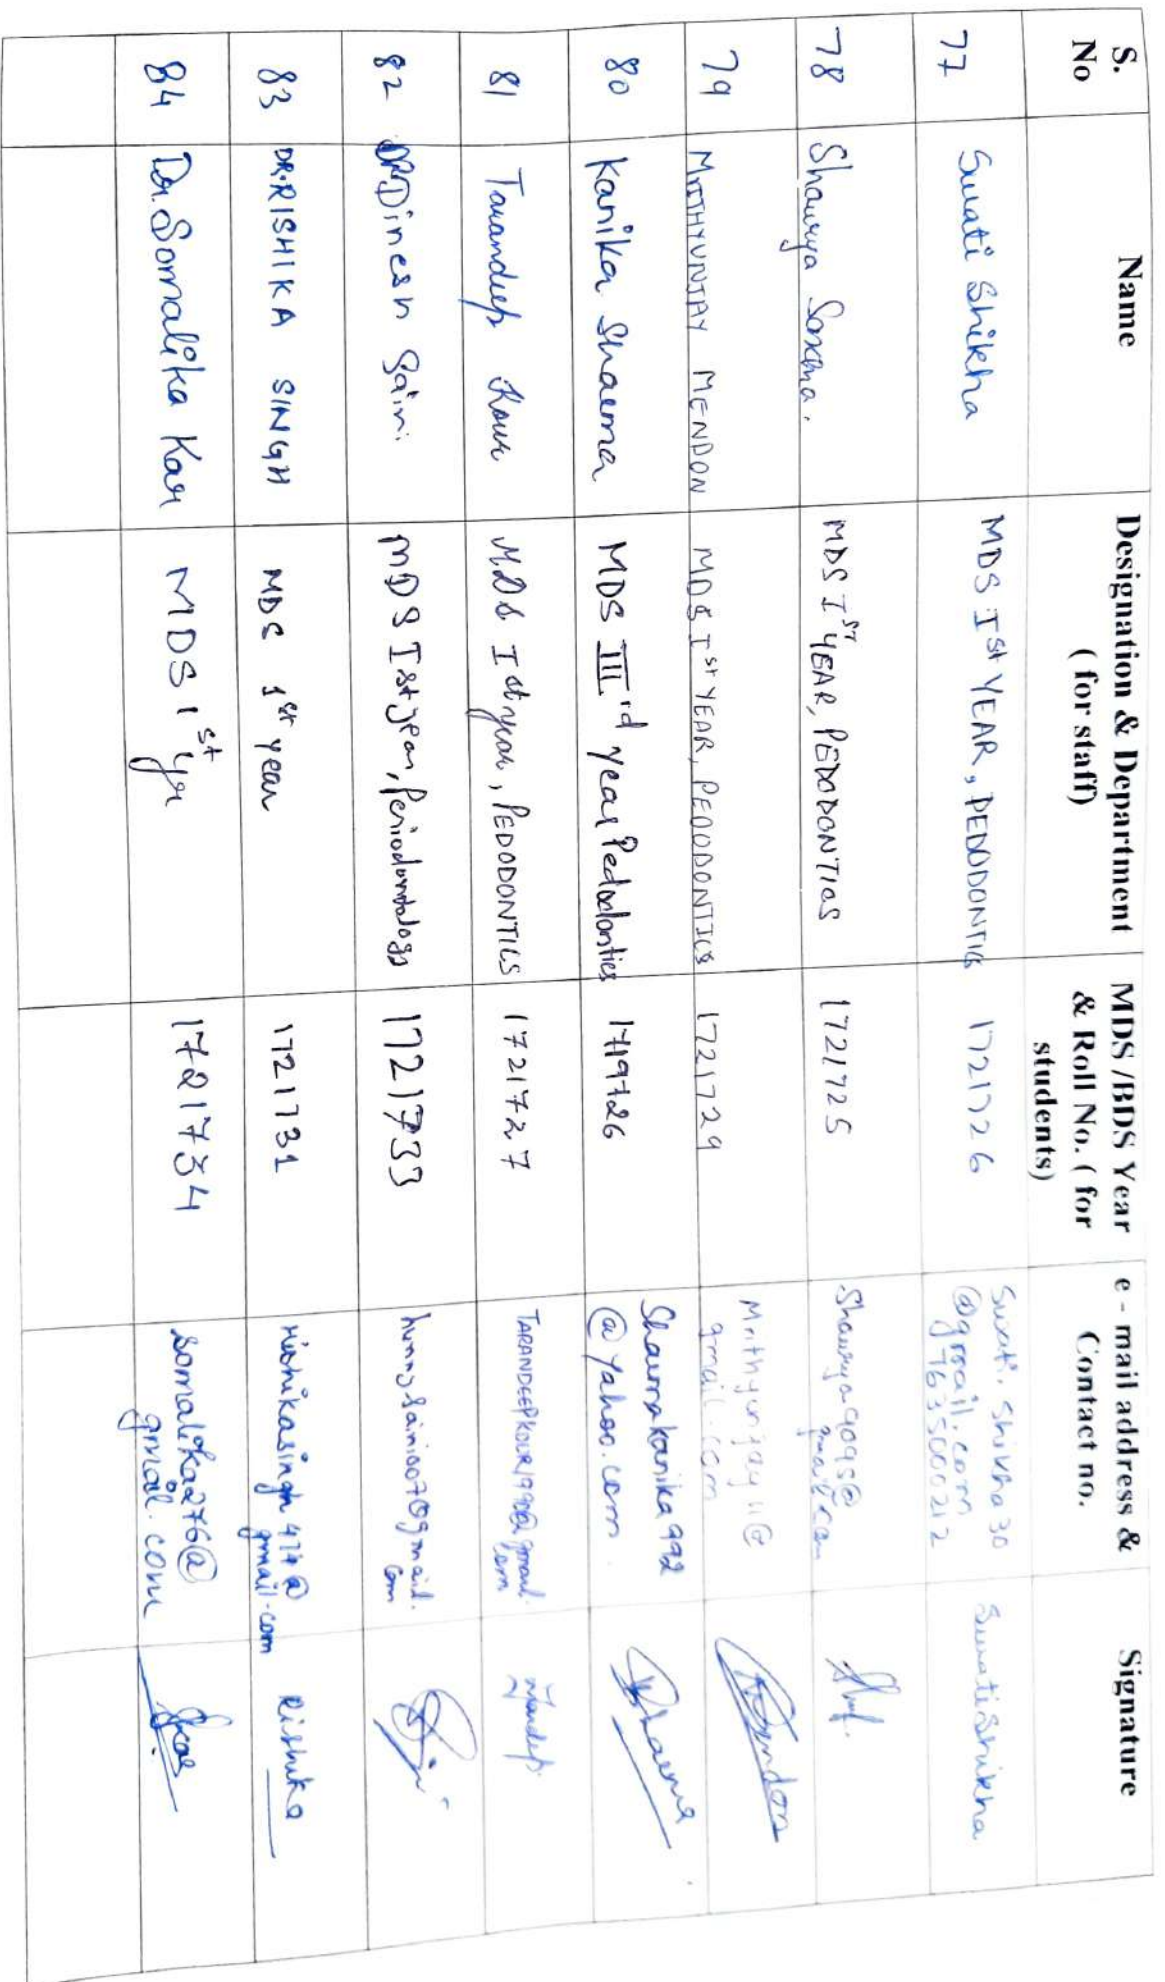 S. No Name Designation & Department ( for staff) MDS /BDS Year & Roll No. ( for students) e - mail address & Contact no. Signature
77 Swati Shikha MDS Ist YEAR, PEDODONTICS 1721726 Swati.shikha30@gmail.com 7635000212 Swati Shikha
78 Shaurya Saxena. MDS Ist YEAR, PEDODONTICS 1721725
79 MRITHYUNJAY MENDON MDS Ist YEAR, PEDODONTICS 1721729 Mrithyunjay11@gmail.com Mendon
80 Kanika Sharma MDS IIIrd year Pedodontics 1719726 Sharmakanika992@yahoo.com. KSharma
81 Tarandeep Kour MDS Ist year, PEDODONTICS 1721727 TARANDEEPKOUR1990@gmail.com
82 DR Dinesh Saini MDS Ist year, Periodontology 1721733 hunnysaini007@gmail.com
83 DR.RISHIKA SINGH MDS 1st year 1721731 rishikasingh414@gmail.com Rishika
84 Dr. Somalika Kar MDS 1st yr 1721734 somalika276@gmail.com Skar